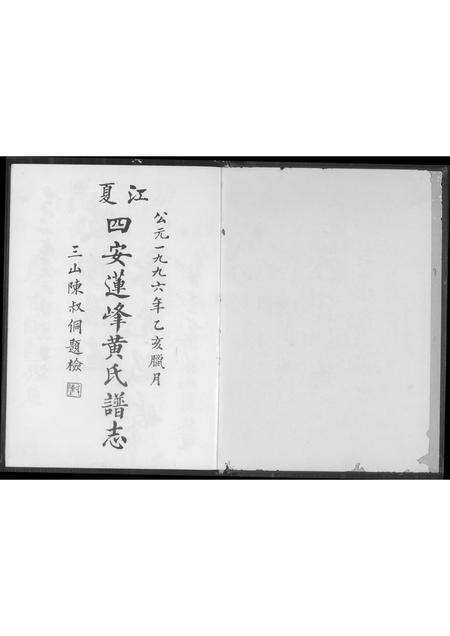 公元一九九六年乙亥臘月
江夏
四安蓮峰黄氏譜志
三山陳叔侗題檢